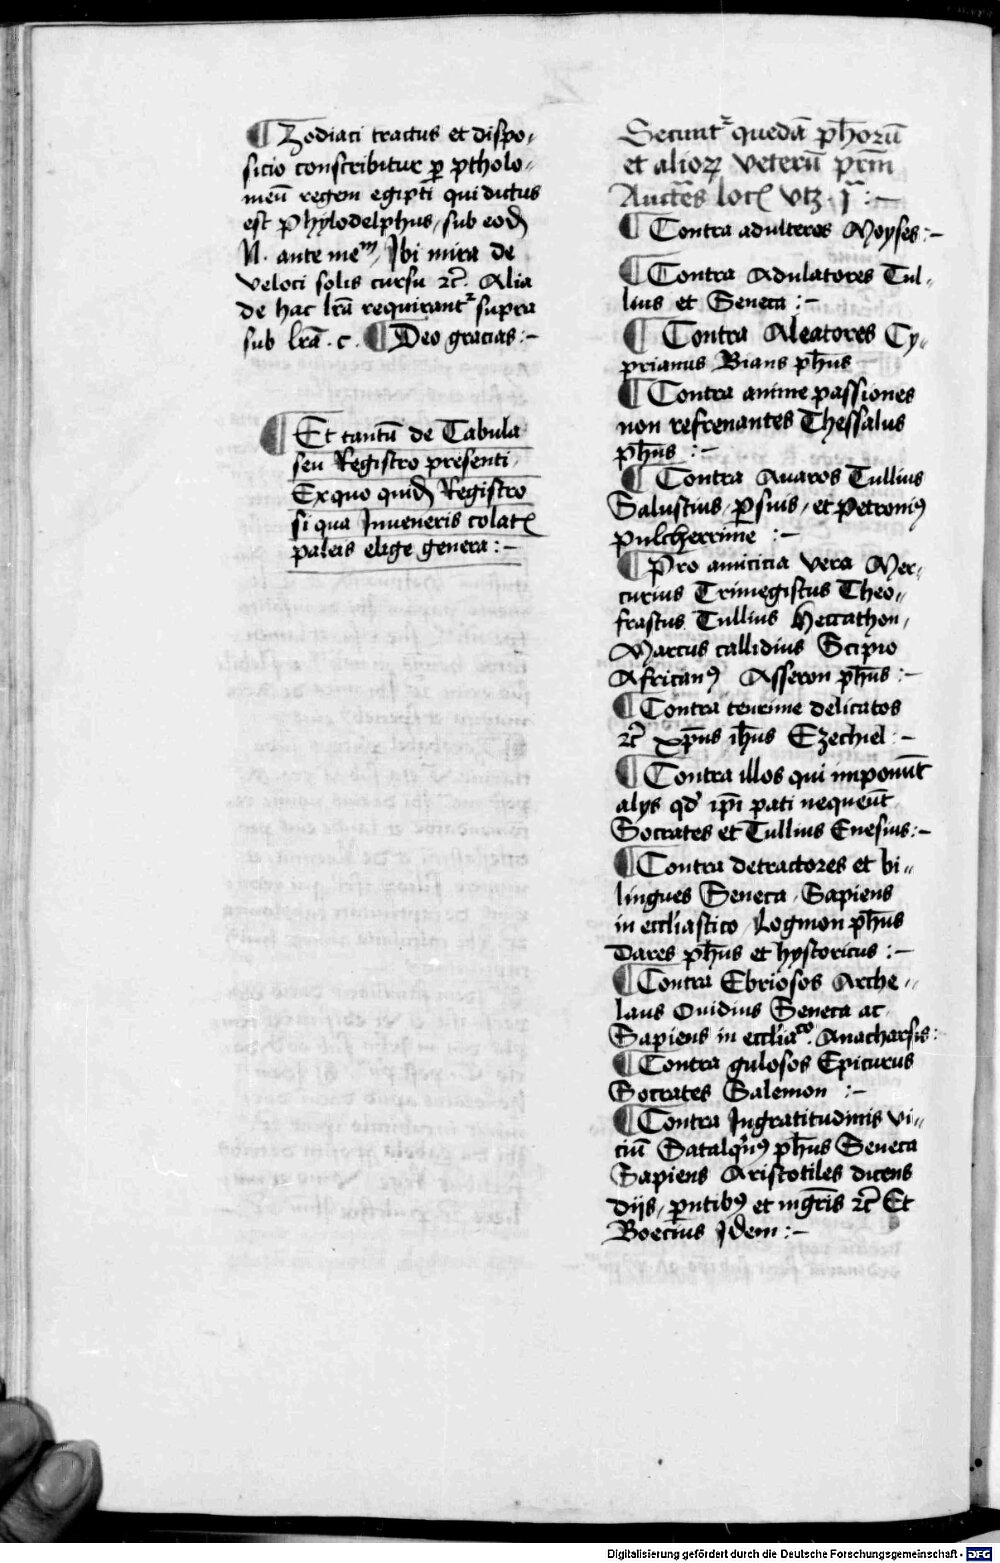 ¶ Zodiaci tractus et dispo-
sicio conscribitur ꝑ ptholo-
meū regem egipti qui dictus
est Phylodelphus, sub eod̄
N. ante meᵐ, Ibi mira de
veloci solis cursu ⁊c̄. Alia
de hac lrā requirant᷑ supra
sub lrā. c. ¶ Deo gracias :-
¶ Et tantū de Tabula
seu Registro presenti,
Ex quo quid̄ Registro
si qua Inveneris colat
paleis elige genera :-
Secunt᷑ quedā ph̄orū
et alioꝝ veterū
Auct̄es vtꝫ
¶ Contra adulteros Moyses :-
¶ Contra Adulatores Tul-
lius et Seneca :-
¶ Contra Aleatores Cy-
prianus Bians ph̄us
¶ Contra anime passiones
non refrenantes Thessalus
ph̄us :-
¶ Contra Avaros Tullius
Salustius, ꝑsius, et Petroniꝰ
pulcherrime :-
¶ Pro amicicia vera Mer-
curius Trimegistus Theo-
frastus Tullius Heccathon,
Marcus callidius Scipio
Africanꝰ Asseron ph̄us :-
¶ Contra delicatos
⁊c̄ xp̄us ih̄us Ezechiel :-
¶ Contra illos qui imponūt
alijs qd̓ ip̄i pati nequeūt
Socrates et Tullius Enesius :-
¶ Contra detractores et bi-
lingues Seneca, Sapiens
in eccliastico, Logmon ph̄us
Dares ph̄us et hystoricus :-
¶ Contra Ebriosos Arche-
laus Ouidius Seneca ac
Sapiens in eccliaᶜᵒ. Anacharsis :
¶ Contra gulosos Epicurus
Socrates Salemon :-
¶ Contra Ingratitudinis vi-
ciū ph̄us Seneca
Sapiens Aristotiles dicens
dijs, ꝑntibꝰ et mgr̄is ⁊c̄ Et
Boecius Idem :-
Digitalisierung gefördert durch die Deutsche Forschungsgemeinschaft - DFG